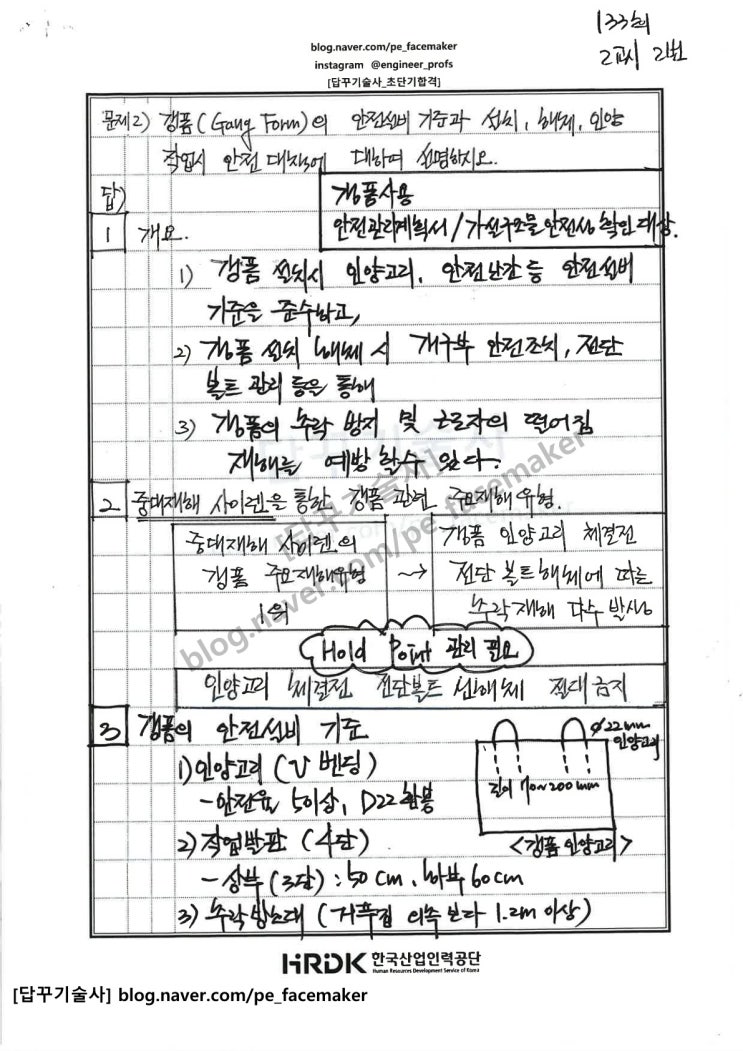 133회
2교시 2번
blog.naver.com/pe_facemaker
instagram @engineer_profs
[답꾸기술사_초단기합격]
문제2) 갱폼(Gang Form)의 안전설비 기준과 설치, 해체, 인양
작업시 안전 대책에 대하여 설명하시오.
답)
갱폼사용
안전관리계획서/가설구조물 안전성 확인 대상.
1 개요.
1) 갱폼 설치시 인양고리, 안전난간 등 안전설비
기준을 준수하고,
2) 갱폼 설치 해체 시 개구부 안전조치, 전단
볼트 관리 등을 통해
3) 갱폼의 추락 방지 및 근로자의 떨어짐
재해를 예방 할수 있다.
2 중대재해 사이렌을 통한 갱폼 관련 주요재해유형.
중대재해 사이렌의
갱폼 주요재해유형
1위
→
갱폼 인양고리 체결전
전단 볼트해체에 따른
추락재해 다수 발생
Hold Point 관리 필요
인양고리 체결전 전단볼트 선해체 절대금지
3 갱폼의 안전설비 기준
1) 인양고리 (U 벤딩)
- 안전율 5이상, D22 환봉
2) 작업발판 (4단)
- 상부(3단) : 50cm, 하부 60cm
3) 추락방호대 (거푸집 외측보다 1.2m 이상)
φ22mm
인양고리
길이 70~200mm
<갱폼 인양고리>
[답꾸기술사]
blog.naver.com/pe_facemaker
HRDK 한국산업인력공단
Human Resources Development Service of Korea
[답꾸기술사] blog.naver.com/pe_facemaker